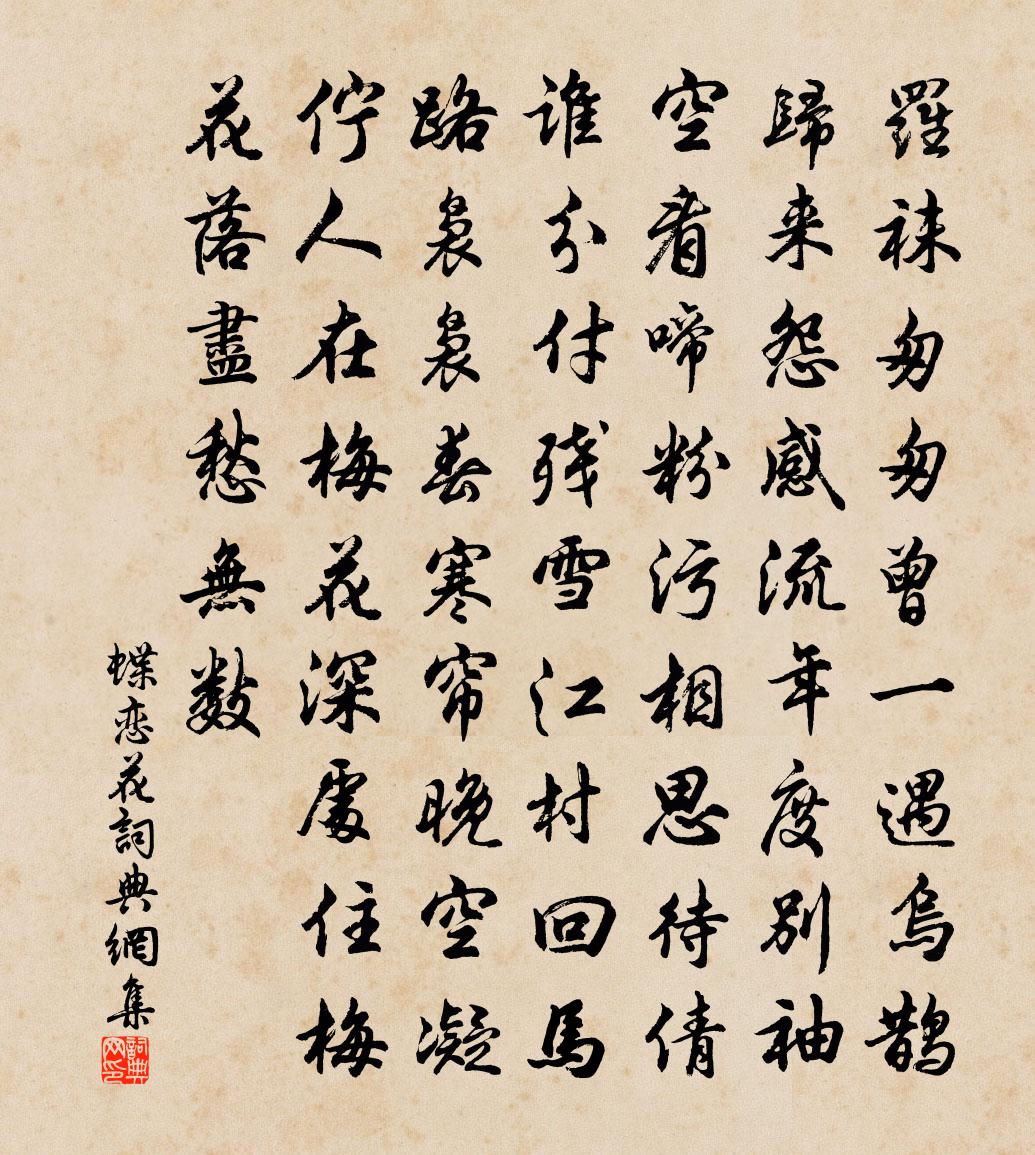 羅袜匆匆曾一遇烏鵲
歸来怨感流年度别袖
空看啼粉污相思待倩
谁分付残雪江村回馬
路袅袅春寒帘晚空凝
佇人在梅花深處住梅
花落盡愁無数
蝶恋花詞典網集
詞典网印